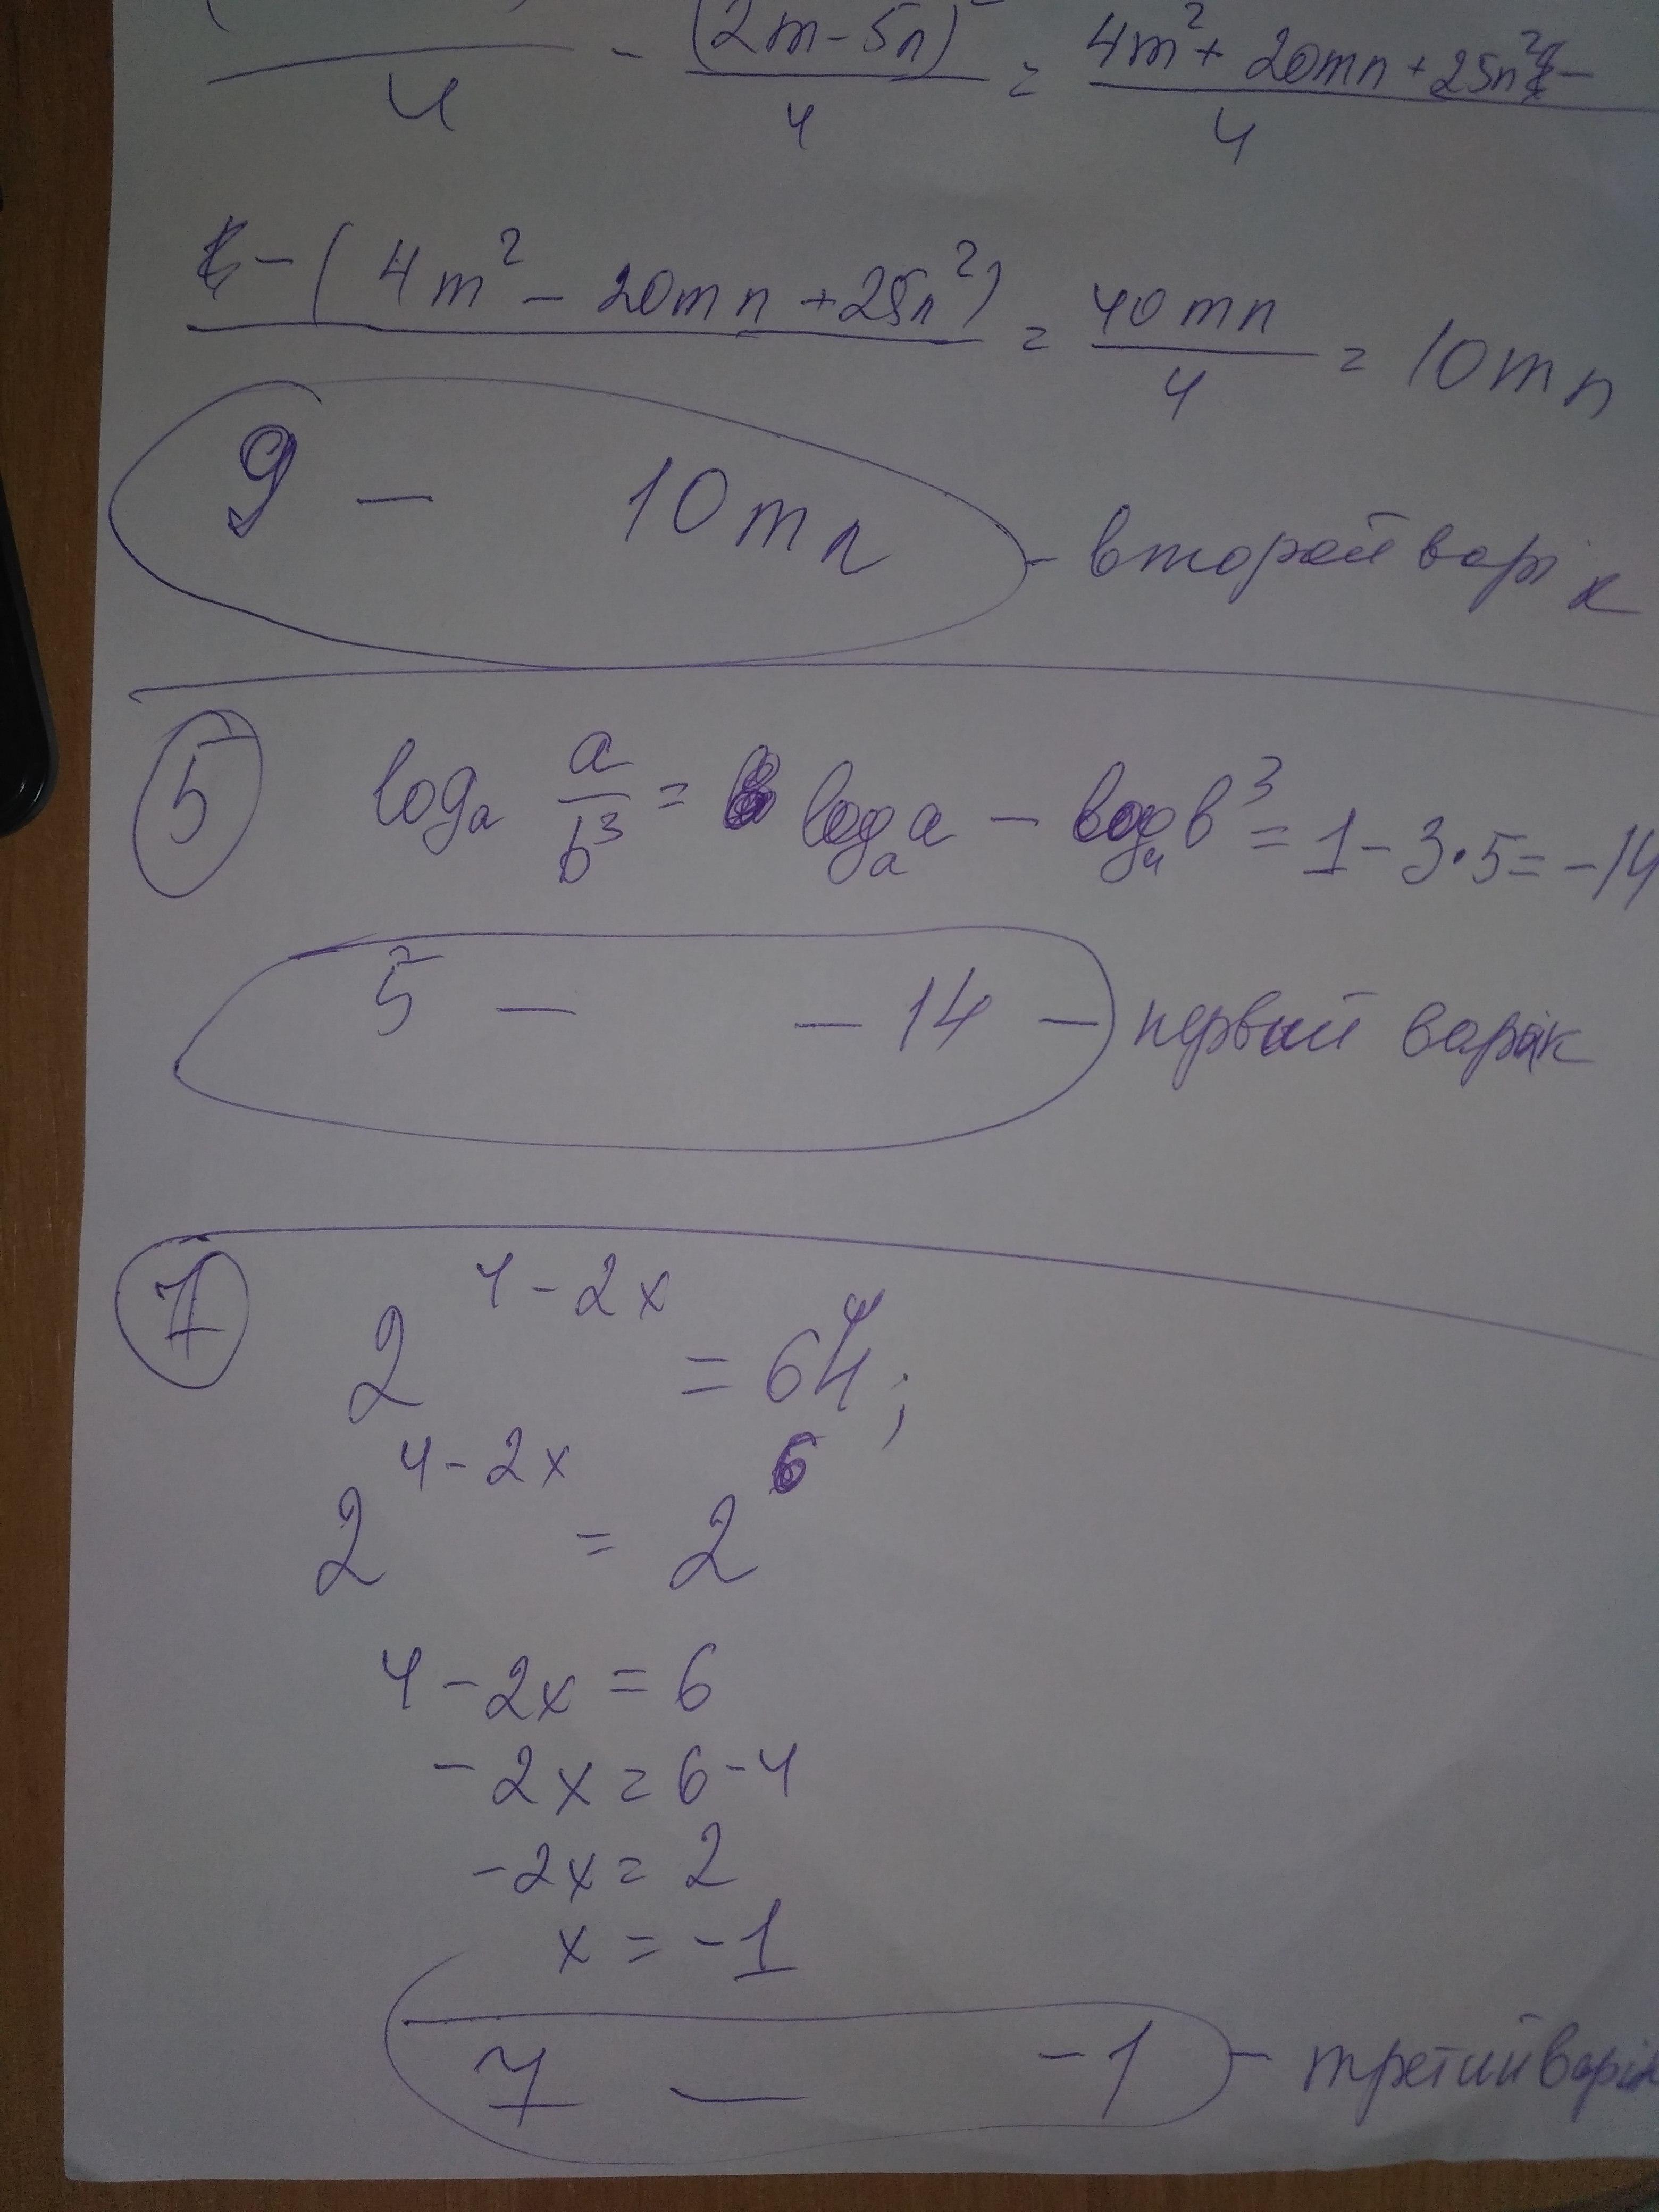 4 - (2m - 5n)² / 4 = 4m² + 20mn + 25n² - / 4
- (4m² - 20mn + 25n²) = 40mn / 4 = 10mn
9 - 10mn - второй варік
5 logₐ a/b³ = logₐa - logₐb³ = 1 - 3·5 = -14
5 - -14 - первый варік
7 2^(4-2x) = 64;
2^(4-2x) = 2^6
4 - 2x = 6
-2x = 6-4
-2x = 2
x = -1
7 - -1 - третий варік